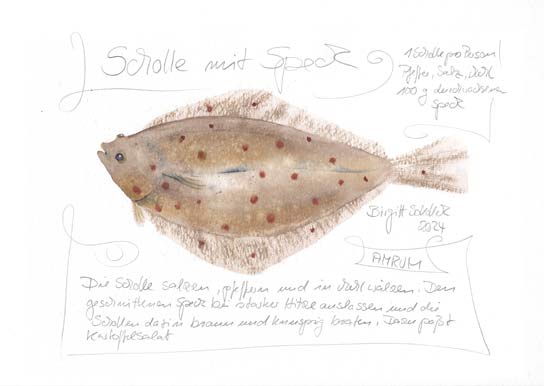 Scholle mit Speck
1 Scholle pro Person
Pfeffer, Salz, Mehl
100 g durchwachsener
Speck
Birgitt
2024
AMRUM
Die Scholle salzen, pfeffern und in Mehl wälzen. Den
geschnittenen Speck bei starker Hitze auslassen und die
Schollen darin braun und knusprig braten. Dazu paßt
Kartoffelsalat